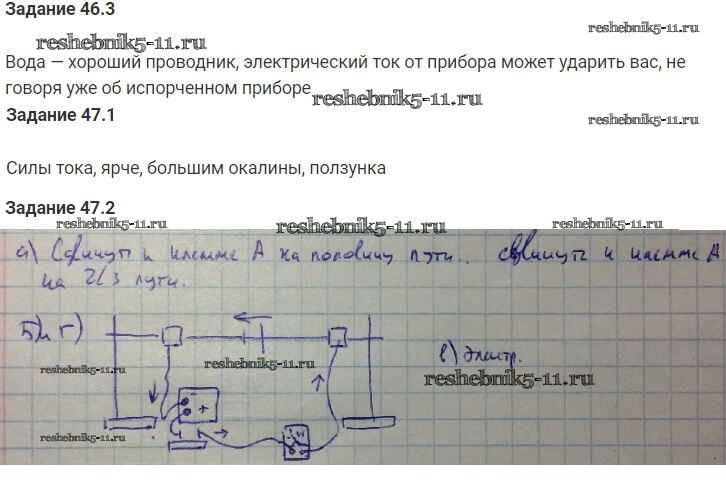 Задание 46.3
reshebnik5-11.ru
reshebnik5-11.ru
Вода — хороший проводник, электрический ток от прибора может ударить вас, не
говоря уже об испорченном приборе
reshebnik5-11.ru
Задание 47.1
reshebnik5-11.ru
Силы тока, ярче, большим окалины, ползунка
Задание 47.2
reshebnik5-11.ru
reshebnik5-11.ru
reshebnik5-11.ru
а) Сдвинуть к клемме А на половину пути. Сдвинуть к клемме А
на 2/3 пути.
г)
в) Электр.
reshebnik5-11.ru
reshebnik5-11.ru
reshebnik5-11.ru
reshebnik5-11.ru
reshebnik5-11.ru